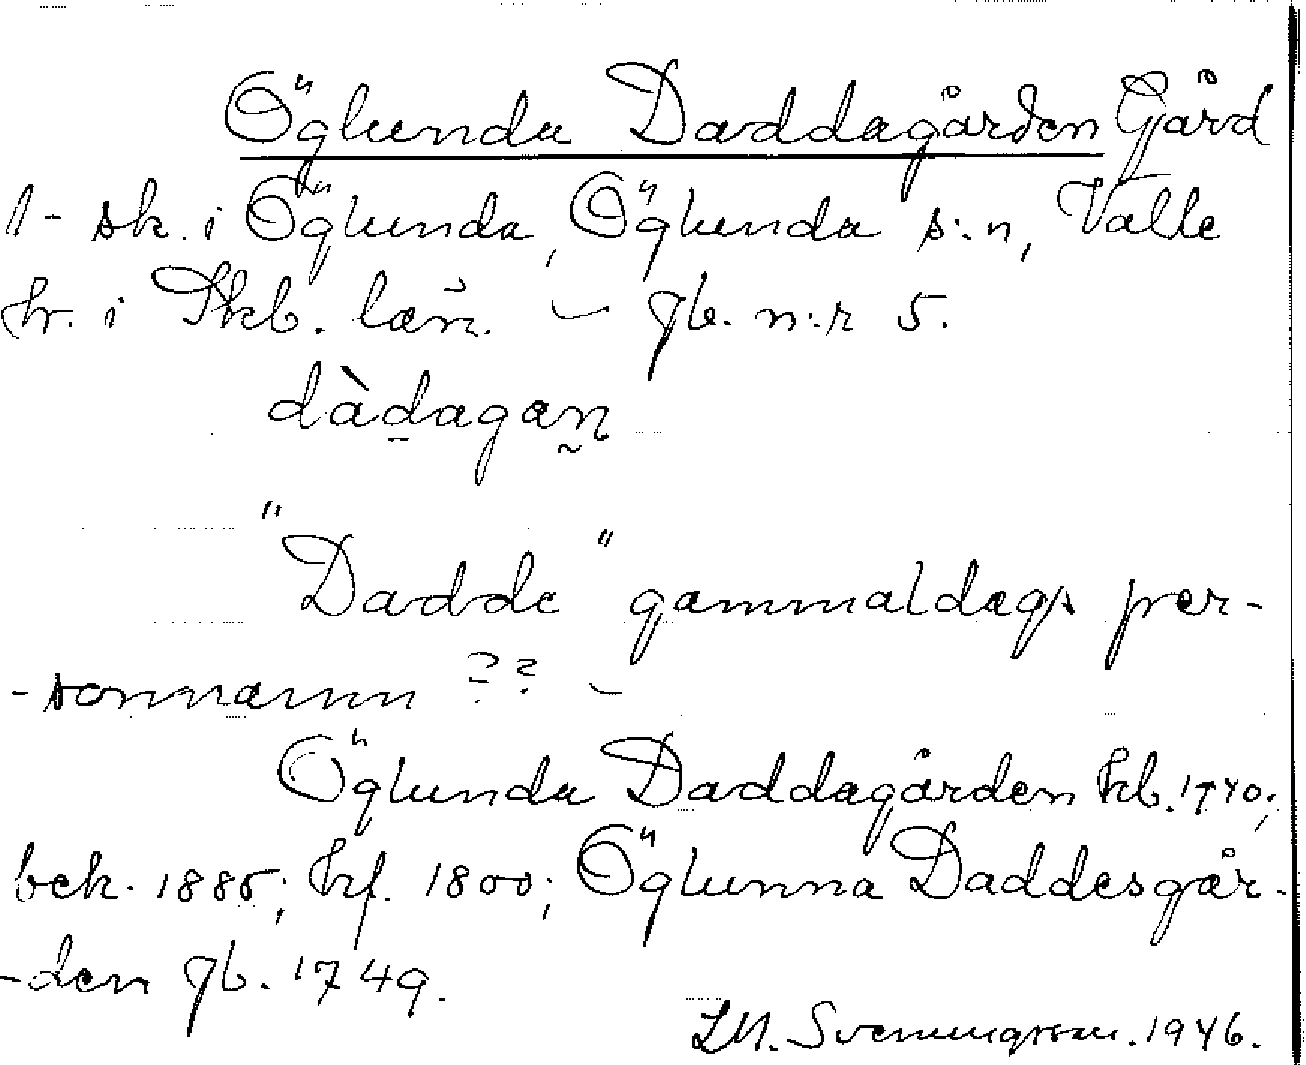 Öglunda Daddagården Gård
1- sk. i Öglunda, Öglunda s:n, Valle
hr. i Skb. län. – jb. n:r 5.
dàdagan̰
"Dadde" gammaldags per-
-sonnamn ?? –
Öglunda Daddagården kb. 1740;
bck. 1885; hf. 1800; Öglunna Daddesgår-
-den jb. 1749.
Svenungsson. 1946.